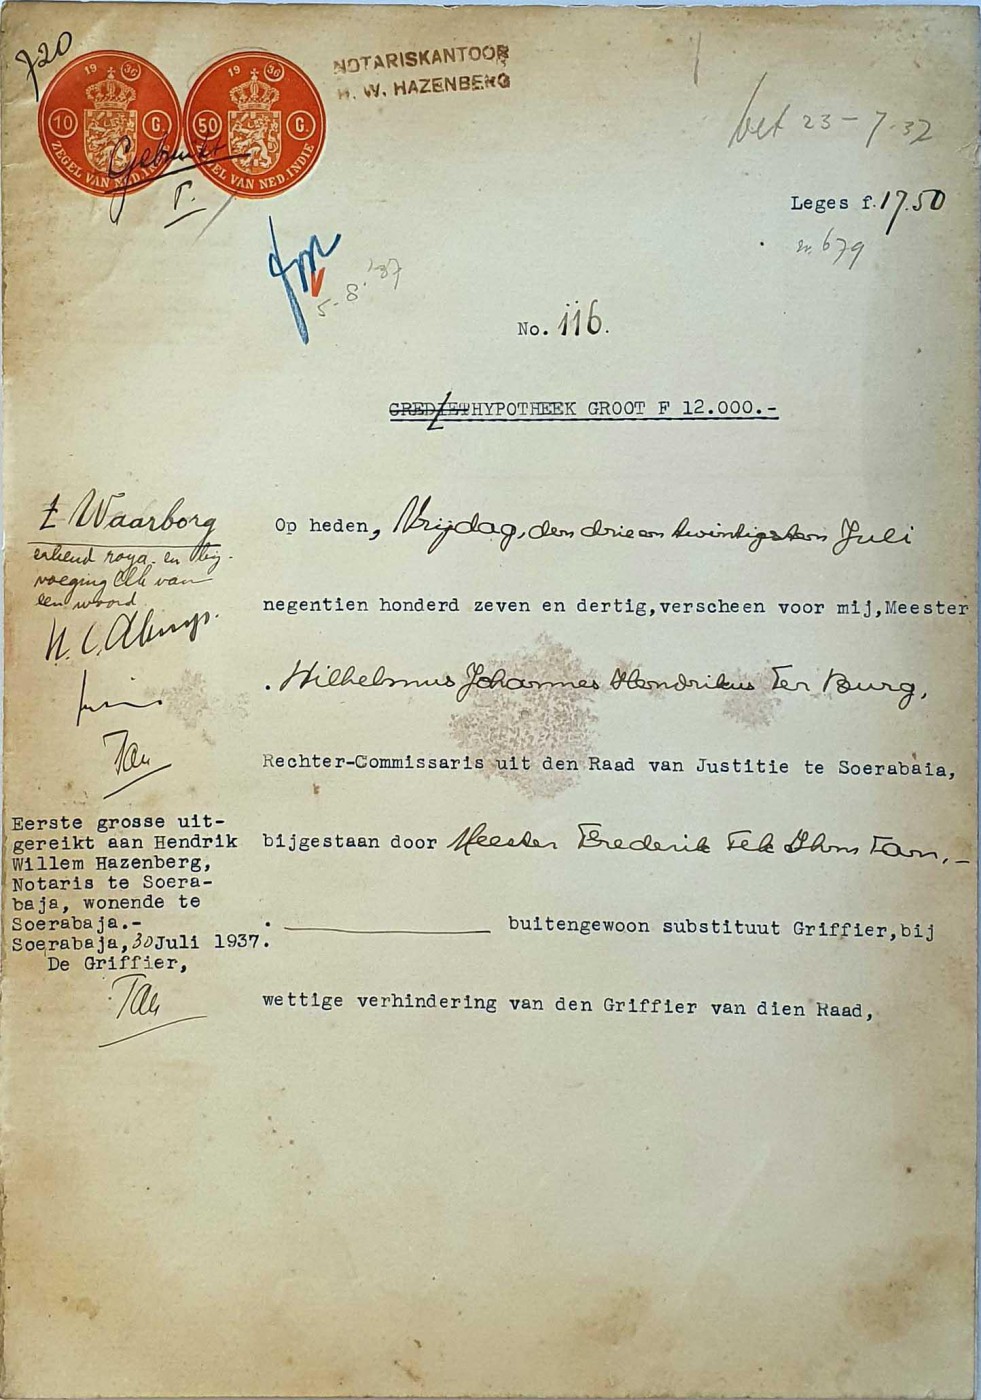 720
19 36
10 G.
ZEGEL VAN NED.IN
19 36
50 G.
ZEGEL VAN NED.INDIE
Gebruikt
NOTARISKANTOOR
H. W. HAZENBERG
bet 23-7-37
Leges f. 17.50
nr. 679
5-8-'37
No. 116.
CREDIETHYPOTHEEK GROOT F 12.000.-
Waarborg
erkend roya- en bij-
voeging elk van
een woord
Op heden, Vrijdag, den drie en twintigsten Juli
negentien honderd zeven en dertig, verscheen voor mij, Meester
Wilhelmus Johannes Hendrikus Ter Burg,
Rechter-Commissaris uit den Raad van Justitie te Soerabaia,
bijgestaan door Meester Frederik Tek Thom Tan,
buitengewoon substituut Griffier, bij
wettige verhindering van den Griffier van dien Raad,
Tan
Eerste grosse uit-
gereikt aan Hendrik
Willem Hazenberg,
Notaris te Soera-
baja, wonende te
Soerabaja.-
Soerabaja, 30 Juli 1937.
De Griffier,
Tan